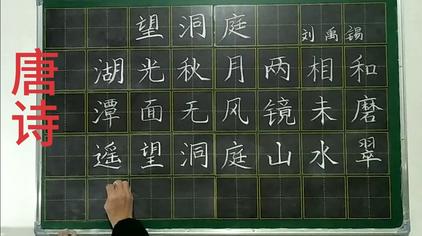 唐诗
望洞庭
刘禹锡
湖光秋月两相和
潭面无风镜未磨
遥望洞庭山水翠